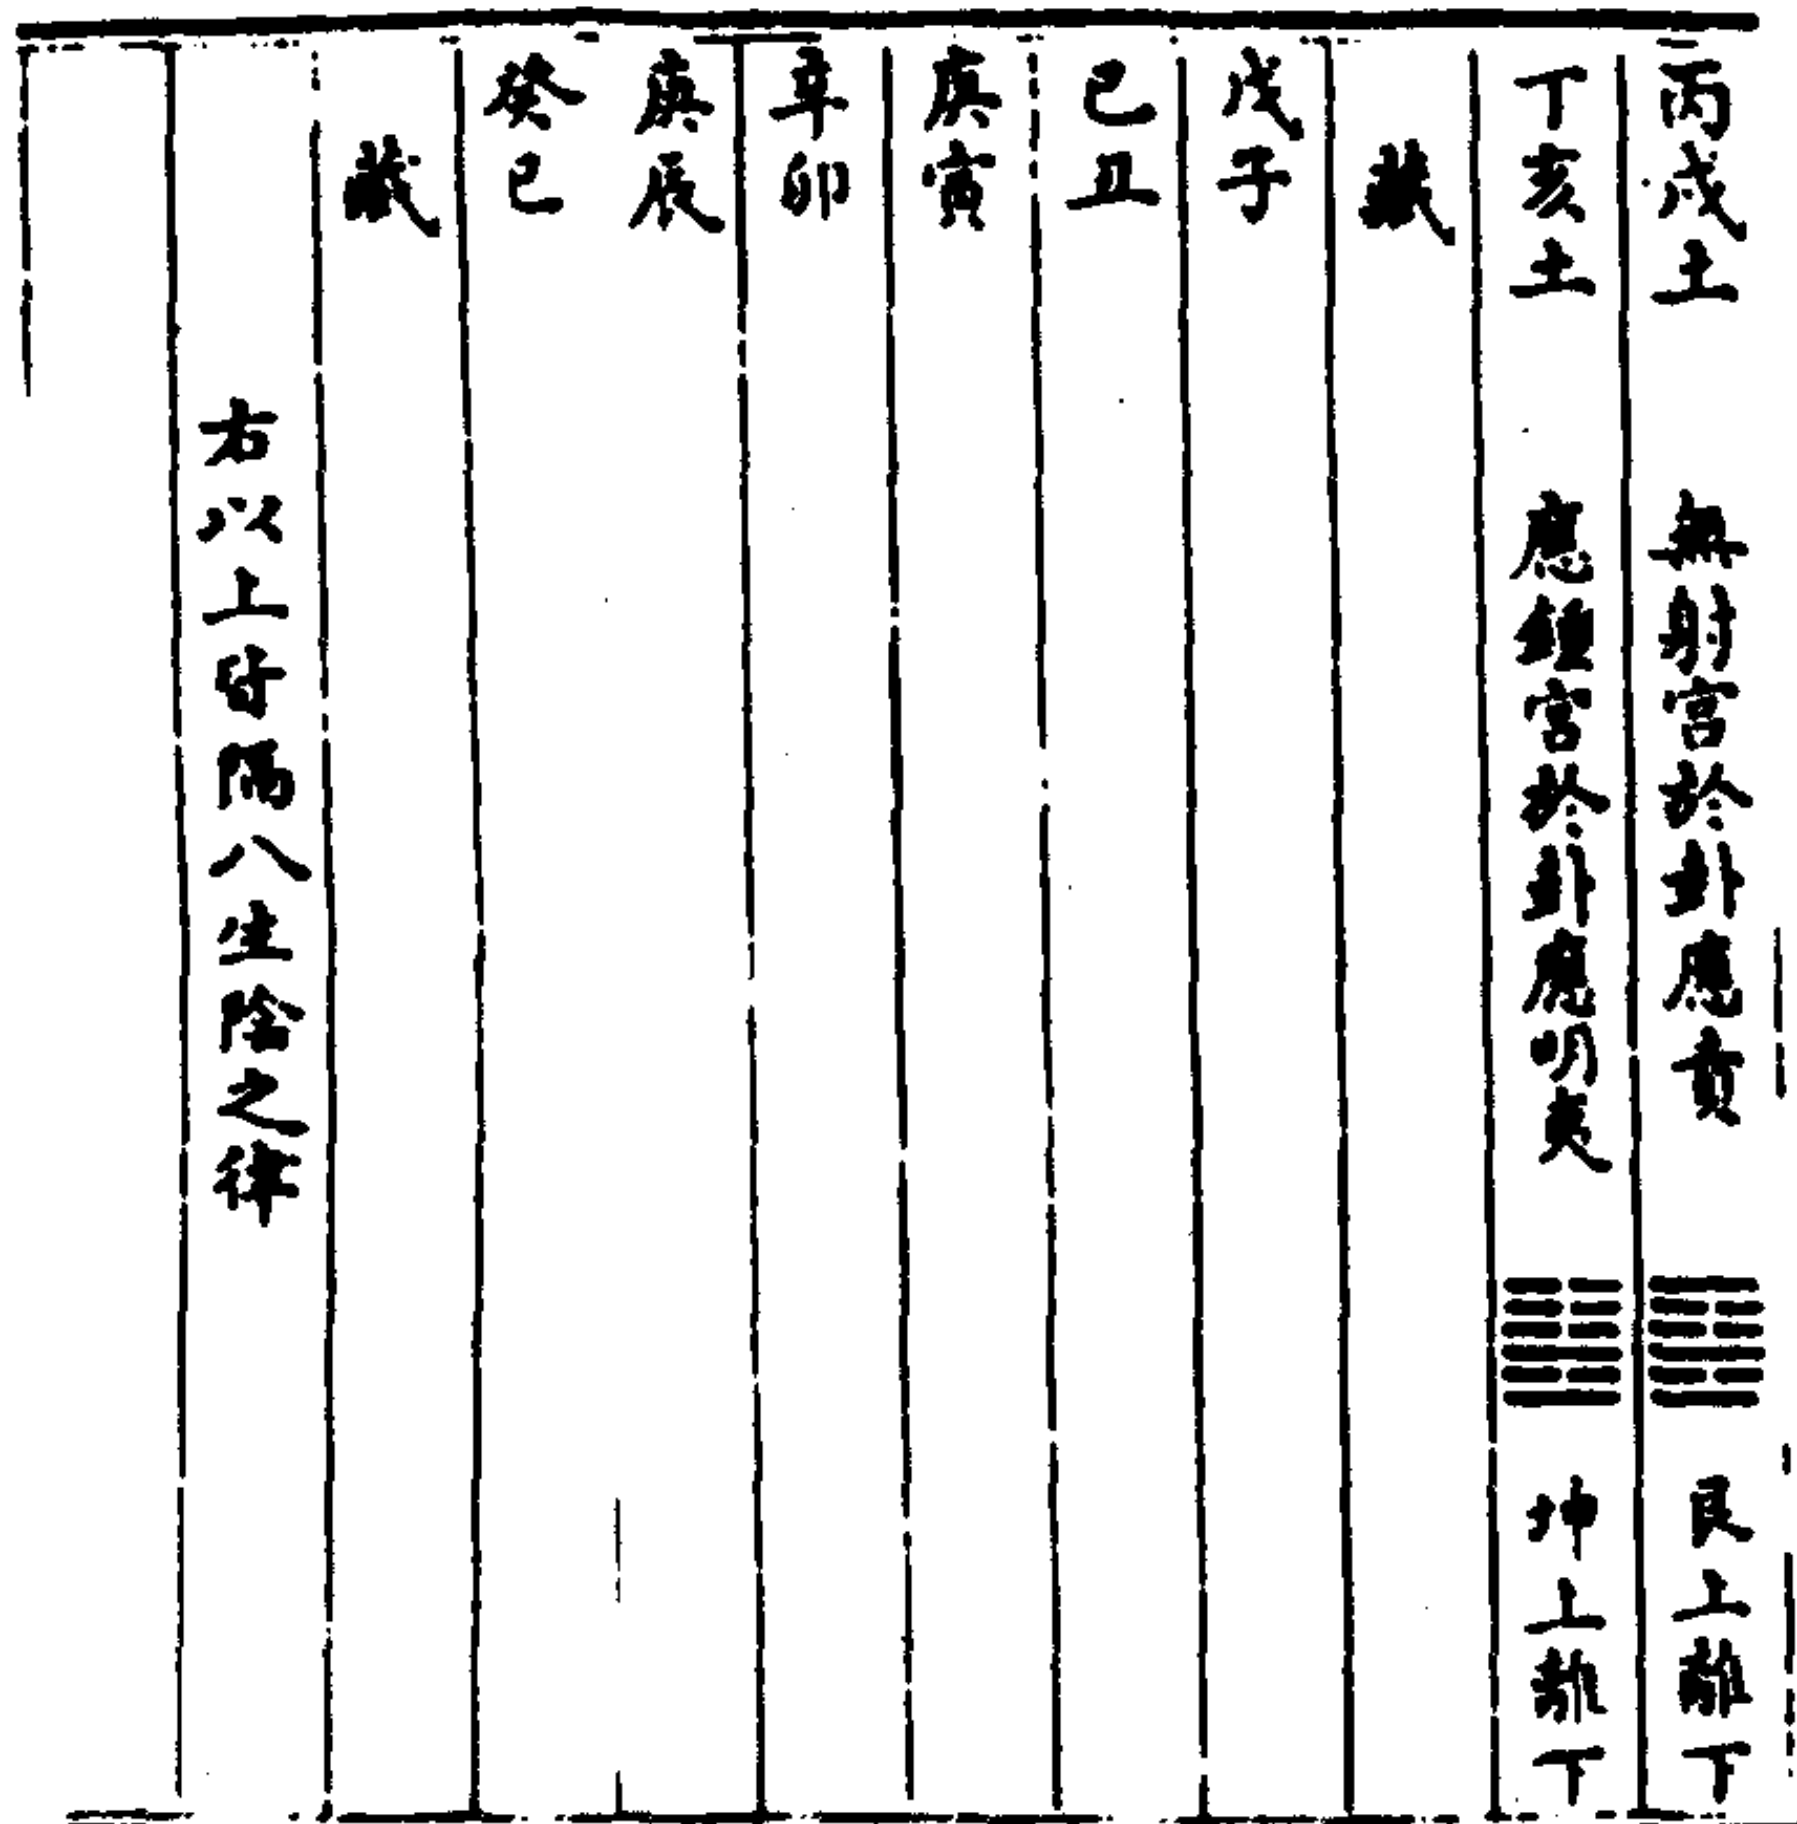 丙戌土 無射宮於卦應賁 ䷕ 艮上離下
丁亥土 應鍾宮於卦應明夷 ䷣ 坤上離下
藏
戊子
己丑
庚寅
辛卯
庚辰
癸巳
藏
右以上皆隔八生陰之律